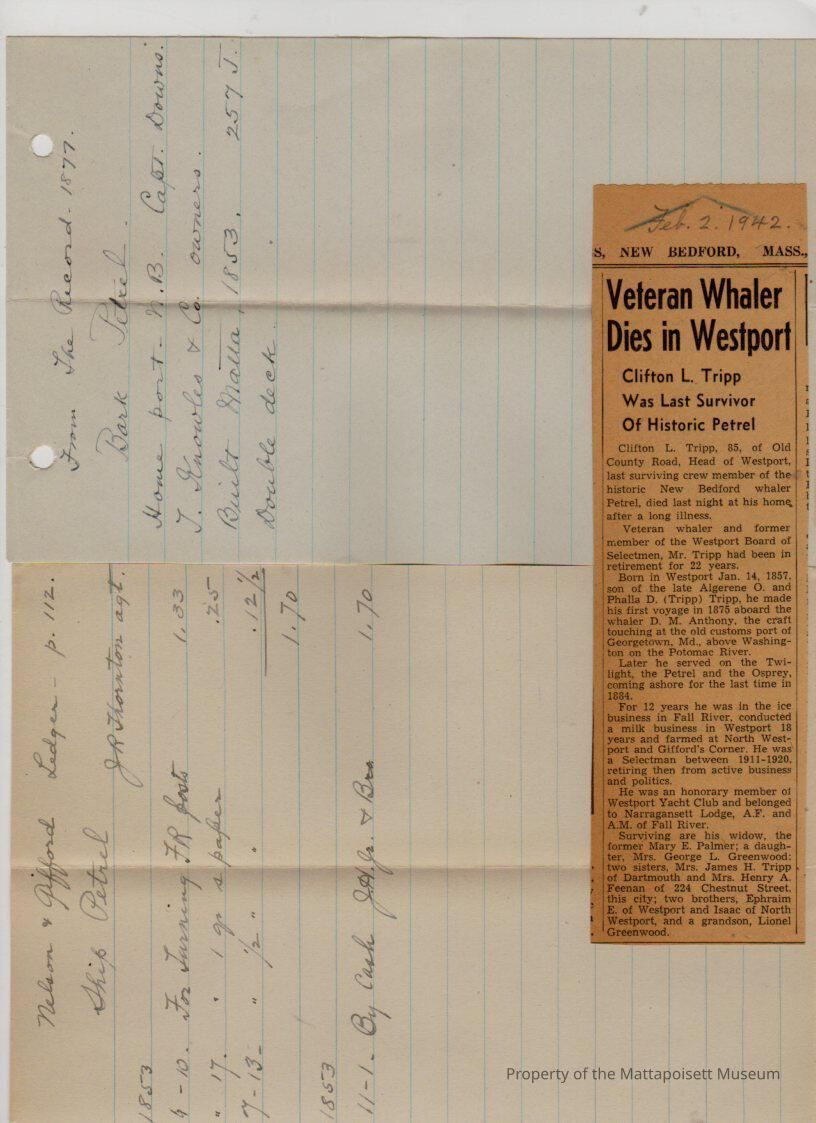 From The Record. 1877.
Bark Petrel.
Home port - N.B. Capt. Downs.
J. Knowles & Co. owners.
Built Matta, 1853. 257 T.
Double deck.
Nelson & Gifford Ledger - p. 112.
Ship Petrel J.R. Thornton agt.
1853
- 10. For Turning posts 1.33
" 17. " 1 paper .25
7-13- " 1/2 " " .12 1/2
1.70
1853
11-1- By Cash & Bro 1.70
Feb. 2. 1942.
S, NEW BEDFORD, MASS.,
Veteran Whaler
Dies in Westport
Clifton L. Tripp
Was Last Survivor
Of Historic Petrel
Clifton L. Tripp, 85, of Old
County Road, Head of Westport,
last surviving crew member of the
historic New Bedford whaler
Petrel, died last night at his home,
after a long illness.
Veteran whaler and former
member of the Westport Board of
Selectmen, Mr. Tripp had been in
retirement for 22 years.
Born in Westport Jan. 14, 1857,
son of the late Algerene O. and
Phalla D. (Tripp) Tripp, he made
his first voyage in 1875 aboard the
whaler D. M. Anthony, the craft
touching at the old customs port of
Georgetown, Md., above Washing-
ton on the Potomac River.
Later he served on the Twi-
light, the Petrel and the Osprey,
coming ashore for the last time in
1884.
For 12 years he was in the ice
business in Fall River, conducted
a milk business in Westport 18
years and farmed at North West-
port and Gifford's Corner. He was
a Selectman between 1911-1920,
retiring then from active business
and politics.
He was an honorary member of
Westport Yacht Club and belonged
to Narragansett Lodge, A.F. and
A.M. of Fall River.
Surviving are his widow, the
former Mary E. Palmer; a daugh-
ter, Mrs. George L. Greenwood;
two sisters, Mrs. James H. Tripp
of Dartmouth and Mrs. Henry A.
Feenan of 224 Chestnut Street,
this city; two brothers, Ephraim
E. of Westport and Isaac of North
Westport, and a grandson, Lionel
Greenwood.
Property of the Mattapoisett Museum